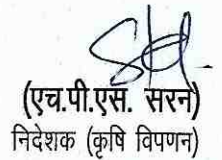 (एच.पी.एस. सरन)
निदेशक (कृषि विपणन)